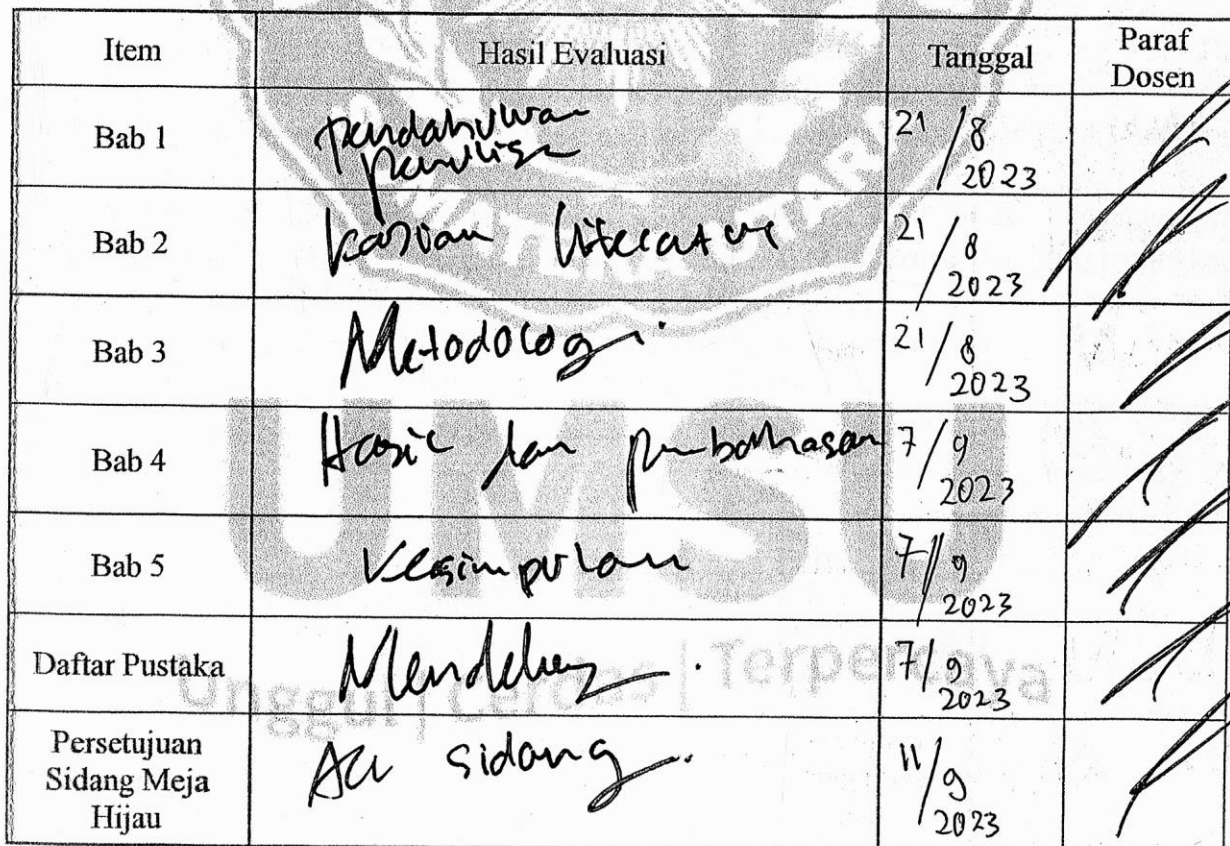 Item Hasil Evaluasi Tanggal Paraf Dosen
Bab 1 Pendahuluan 21/8 2023
Bab 2 Kajian literature 21/8 2023
Bab 3 Metodologi 21/8 2023
Bab 4 Hasil dan pembahasan 7/9 2023
Bab 5 Kesimpulan 7/9 2023
Daftar Pustaka Mendeley 7/9 2023
Persetujuan Sidang Meja Hijau Acc sidang. 11/9 2023
MATERA UTARA
UMSU
Unggul | Cerdas | Terpercaya